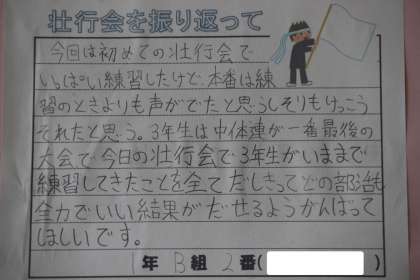 壮行会を振り返って
今回は初めての壮行会で
いっぱい練習したけど、本番は練
習のときよりも声がでたと思うしそりもけっこう
それたと思う。3年生は中体連が一番最後の
大会で今日の壮行会で3年生がいままで
練習してきたことを全てだしきってどの部活も
全力でいい結果がだせるようがんばって
ほしいです。
1年 B組 2番( )